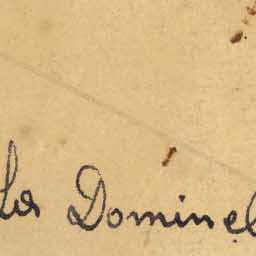 les Dominel